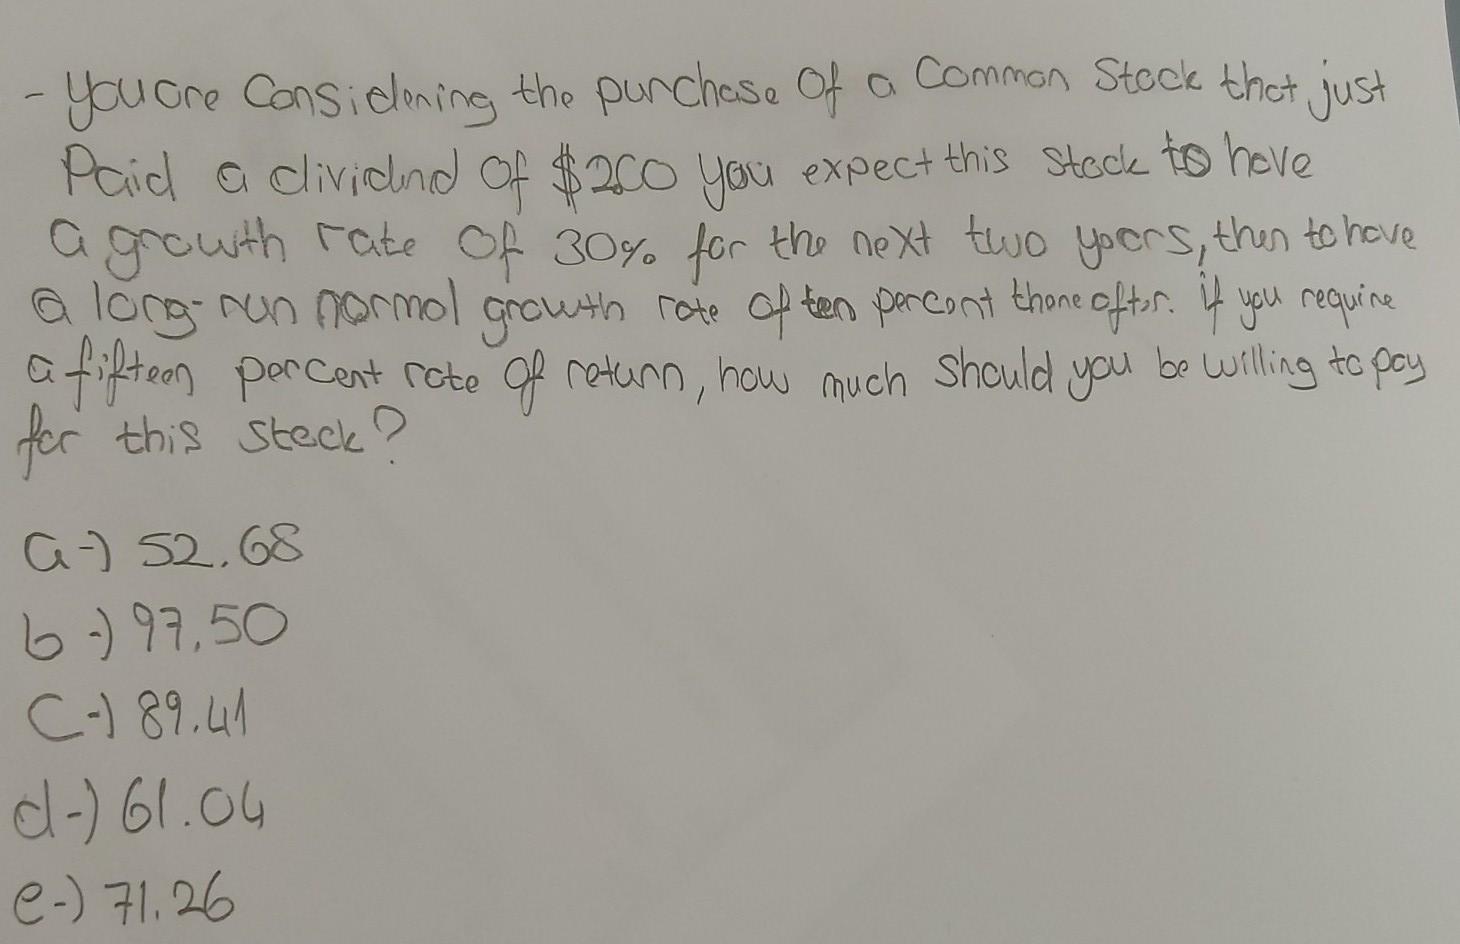 - You are Considering the purchase of a Common Stock that just
Paid a dividnd of $2.00 you expect this stock to have
a growth rate of 30% for the next two years, then to have
a long-run normal growth rate of ten percent thereafter. if you require
a fifteen percent rate of return, how much should you be willing to pay
for this stock?
a-) 52.68
b-) 97.50
c-) 89.41
d-) 61.04
e-) 71.26